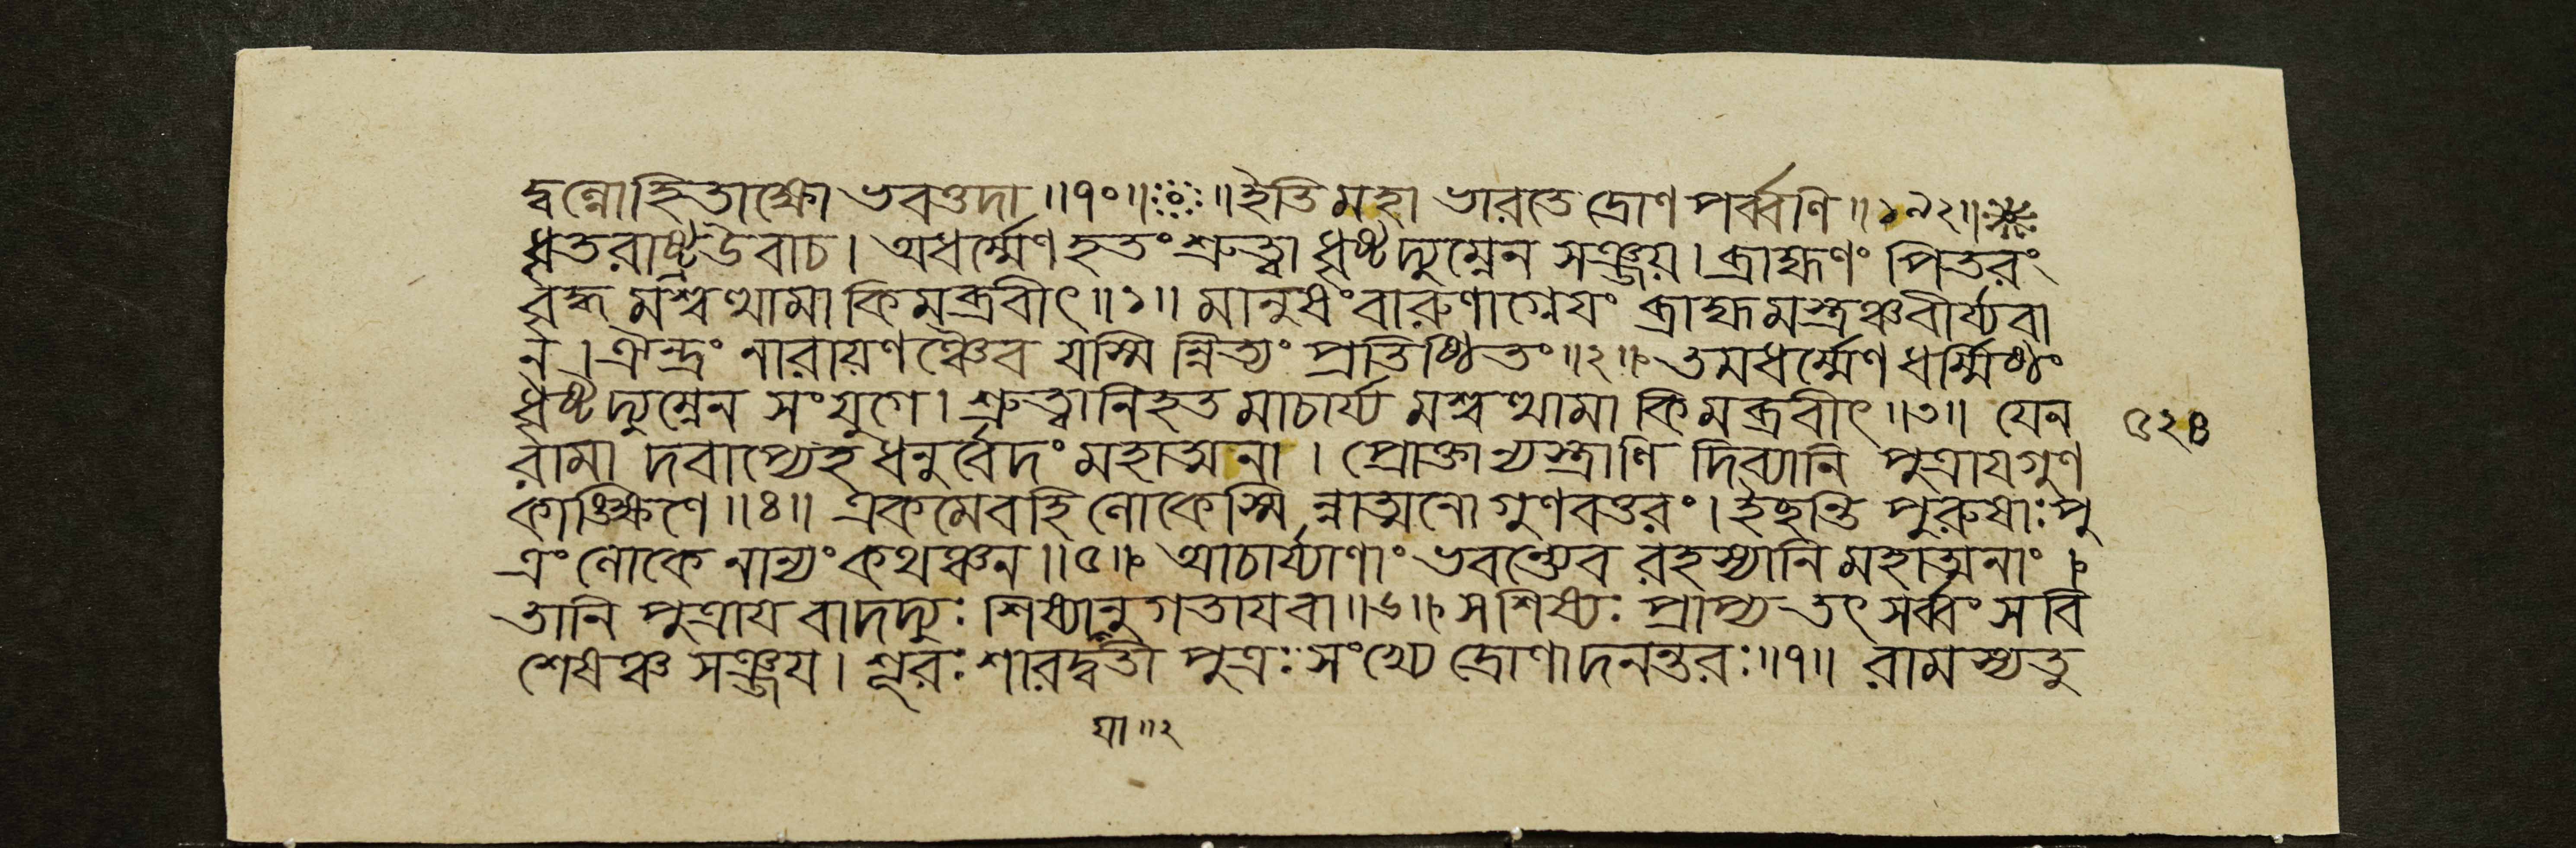 দ্বল্লোহিতাক্ষোভবত্তদা॥৭০॥ ॥ইতিমহাভারতেদ্রোণপর্ব্বণি॥১৯২॥
ধৃতরাষ্ট্রউবাচ। অধর্ম্মেণহতংশ্রুত্বাধৃষ্টদ্যুম্নেনসঞ্জয়। ব্রাহ্মণংপিতরং
বৃদ্ধমশ্বত্থামাকিমব্রবীৎ॥১॥ মানুষংবারুণাগ্নেযংব্রাহ্মমস্ত্রঞ্চবীর্য্যবা
ন্। ঐন্দ্রংনারায়ণঞ্চৈবযস্মিন্নিত্যংপ্রতিষ্ঠিতং॥২॥ তমধর্ম্মেণধর্ম্মিষ্ঠং
ধৃষ্টদ্যুম্নেনসংযুগে। শ্রুত্বানিহতমাচার্য্যমশ্বত্থামাকিমব্রবীৎ॥৩॥ যেন
রামাদবাপ্যেহধনুর্বেদংমহাত্মনা। প্রোক্তান্যস্ত্রাণিদিব্যানিপুত্রাযগুণ
কাঙ্ক্ষিণে॥৪॥ একমেবহিলোকেস্মিন্নাত্মনোগুণবত্তরং। ইছন্তিপুরুষাঃপু
ত্রংলোকেনান্যংকথঞ্চন॥৫॥ আচার্য্যাণাংভবন্ত্যেবরহস্যানিমহাত্মনাং।
তানিপুত্রাযবাদদ্যুঃশিষ্যানুগতাযবা॥৬॥ সশিষ্যঃপ্রাপ্যতৎসর্ব্বংসবি
শেষঞ্চসঞ্জয। শূরঃশারদ্বতীপুত্রঃসংখ্যেদ্রোণাদনন্তরঃ॥৭॥ রামস্যতু
৫২৪
যা॥২